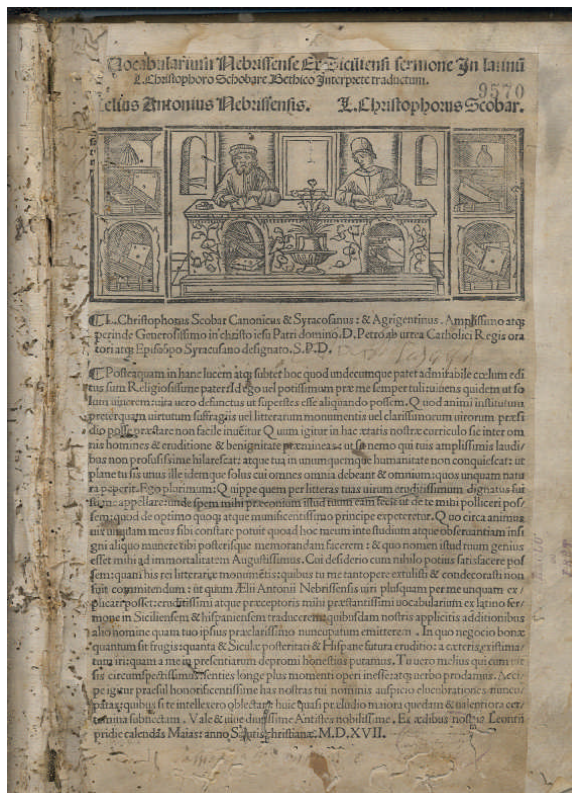 Vocabularium Nebrissense Ex Siciliensi sermone In latinũ
L. Christophoro Schobare Bethico Interprete traductum.
9570
elius Antonius Nebrissensis. L. Christophorus Scobar.
L. Christophorus Scobar Canonicus & Syracosanus : & Agrigentinus . Amplissimo atq;
perinde Generosissimo in christo iesu Patri domino .D. Petro ab urrea Catholici Regis ora
tori atq; Episcopo Syracusano designato. S. P. D.
Posteaquam in hanc lucem atq; subter hoc quod undecumque patet admirabile cœlum edi
tus sum Religiosissime pater: Id ego uel potissimum præ me semper tuli ut uiuens quidem ut so
lum uiuerem: uita uero defunctus ut superstes esse aliquando possem. Quod animi institutum
præterquam uirtutum suffragiis uel litterarum monumentis uel clarissimorum uirorum præsi
dio posse præstare non facile inuẽitur Quum igitur in hac ætatis nostræ curriculo sie inter om
nis homines & eruditione & benignitate præmineas: ut so nemo qui tuis amplissimis laudi
bus non profusissime hilarescat: atque tua in unumquemque humanitate non conquiescat: ut
plane tu sis unus ille idemque solus cui omnes omnia debeant & omnium: quos unquam natu
ra peperit. Ego plurimum: Quippe quem per litteras tuas uirum eruditissimum dignatus fui
appellare: unde spem mihi præconium istud tuum eam fecit ut de te mihi polliceri pos
sem: quod de optimo quoq; atque munificentissimo principe expeteretur. Quo circa anima
unquam meus sibi constare potuit quoad hoc tuum inte studium atque obseruantiam insi
gni aliquo munere tibi posterisque memorandam facerem : & quo nomen istud tuum genius
esset mihi ad immortalitatem Augustissimus. Cui desiderio cum nihilo potuis satisfacere pos
sem: quam his rei litterariæ monumẽtis: quibus tu me tantopere extulisti & condecorasti non
fuit commitendum : ut quum Ælii Antonii Nebrissensis uiri plusquam per me unquam ex
plicari posset: eruditissimi atque præceptoris mihi præstantissimi uocabularium ex latino ser
mone in Siciliensem & hispaniensem traducerem: quibusdam nostris applicitis additionibus
alio homine quam tuo ipsius præclarissimo nuncupatum emitterem . In quo negocio bonæ
quantum sit frugis: quanta & Siculæ posteritati & Hispane futura eruditio: a cæteris existima
tum iri: quam a me in præsentiarum depromi honestius putamus. Tu uero melius qui cum
sis circumspectissimus: senties longe plus momenti operi inesse atq; uerbo prodamus. Acci
pe igitur præsul honorificentissime has nostras tui nominis auspicio elucubrationes nuncu
patas: quibus si te intellexero oblectari: huic quasi præludio maiora quædam & ualentiora cer
tamina subnectam . Vale & uiue diutissime Antistes nobilissime . Ex ædibus nostris Leontii
pridie calendas Maias: anno Salutis christianæ. M.D.XVII.